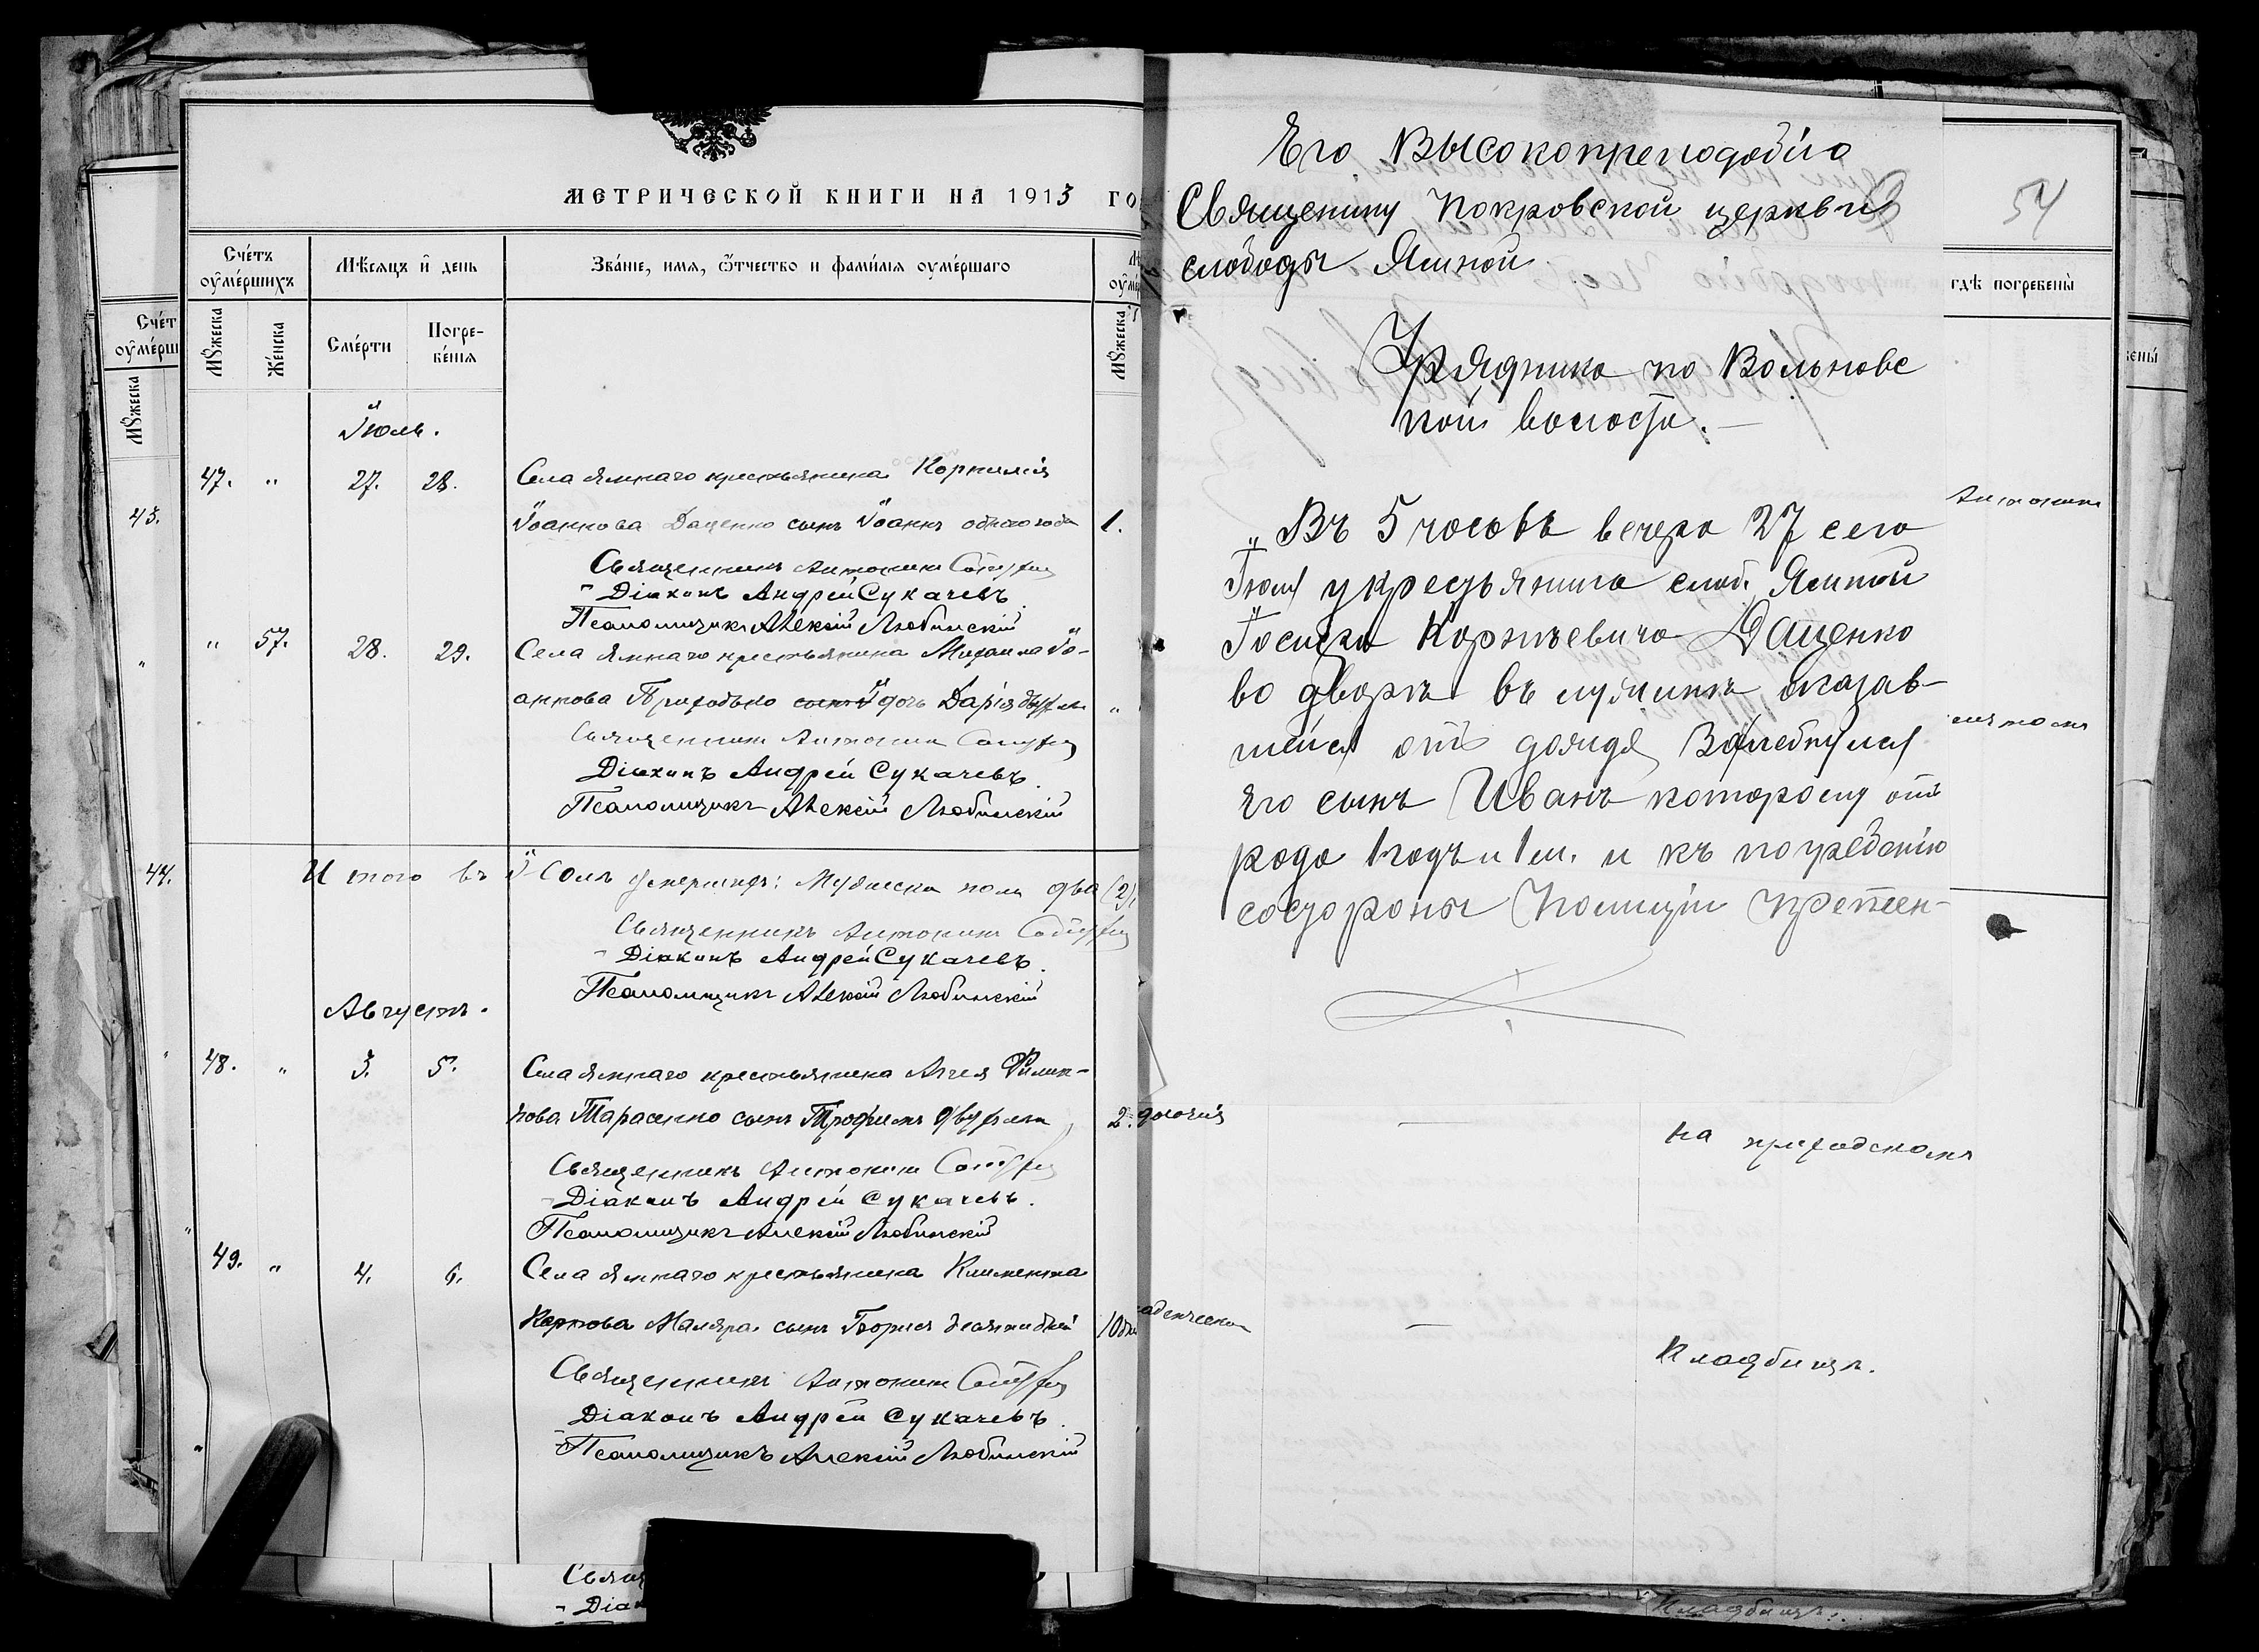 МЕТРИЧЕСКОЙ КНИГИ НА 1913 ГО
Счéтъ ᲂу҆мéршихъ
Мѣсяцъ и҆ день
Звáнїе, имя, ѻ҆́тчество и фамѝлїя ᲂумéршаго
Мꙋ́жеска
Жéнска
Смéрти
Погребéнїя
Мꙋ́жеска
Счéт
ᲂу҆мéрш
Мꙋжеска
43.
44.
Іюль.
47. " 27. 28. Села Ямнаго крестьянина Корнилія
Іоаннова Даценко сынъ Іоаннъ одного года 1.
Священникъ Антонин
Діаконъ Андрей Сукачевъ.
Псаломщикъ Алексій Любинскій
" 57. 28. 29. Села Ямнаго крестьянина Михаила Іо-
аннова Приходько дочь Дарія "
Священникъ Антонин
Діаконъ Андрей Сукачевъ.
Псаломщикъ Алексій Любинскій
Итого въ Іюлѣ умершихъ: Мужеска пола два (2),
Священникъ Антонин
Діаконъ Андрей Сукачевъ.
Псаломщикъ Алексій Любинскій
Августъ.
48. " 3. 5. Села Ямнаго крестьянина Филип-
пова Тарасенко сынъ Трофимъ двухъ лѣтъ 2.
Священникъ Антонин
Діаконъ Андрей Сукачевъ.
Псаломщикъ Алексій Любинскій
49. " 4. 6. Села Ямнаго крестьянина Климента
Карпова Маляра сынъ Борисъ десяти дней 10 дн
Священникъ Антонин
Діаконъ Андрей Сукачевъ.
Псаломщикъ Алексій Любинскій
Свящ
Діак
54
гдѣ погребены̀
Его Высокопреподобію
Священику Покровской церкви
слободы Ямной
Урядника по Вольновс
кой волости.
Въ 5 часовъ вечера 27 сего
Іюля у кресьянина слоб. Ямной
Іосифа Корнѣевича Даценко
во дворѣ въ оказав-
шейся отъ дождя Захлебнулся
его сынъ Иванъ которому отъ
рода 1 годъ и 1 м. и къ погребенію
состороны Полиціи претен-
на приходскомъ
кладбищѣ.
Кладбищѣ.